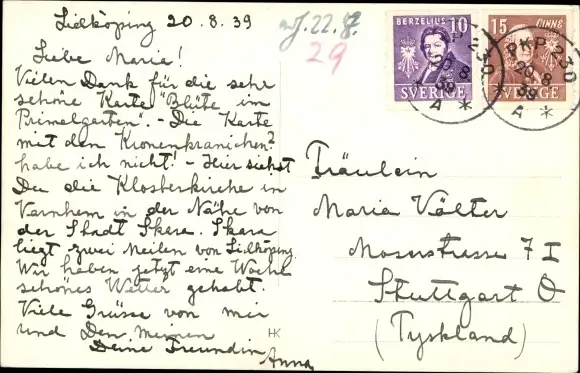 Lidköping 20.8.39
Liebe Maria!
Vielen Dank für die sehr
schöne Karte "Blüte im
Primelgarten". - Die Karte
mit den Kronenkranichen?
habe ich nicht! - Hier siehst
Du die Klosterkirche in
Varnhem in der Nähe von
der Stadt Skara. Skara
liegt zwei Meilen von Lidköping.
Wir haben jetzt eine Woche
schönes Wetter gehabt.
Viele Grüsse von mir
und Den Meinen
Deine Freundin Anna
HK
22.8.
29
BERZELIUS 10
SVERIGE
15 LINNE
SVERIGE
PKP 230
20.8.39
A
PKP 230
20.8.39
A
Fräulein
Maria Völter
Moserstrasse 7 I
Stuttgart O
(Tyskland)